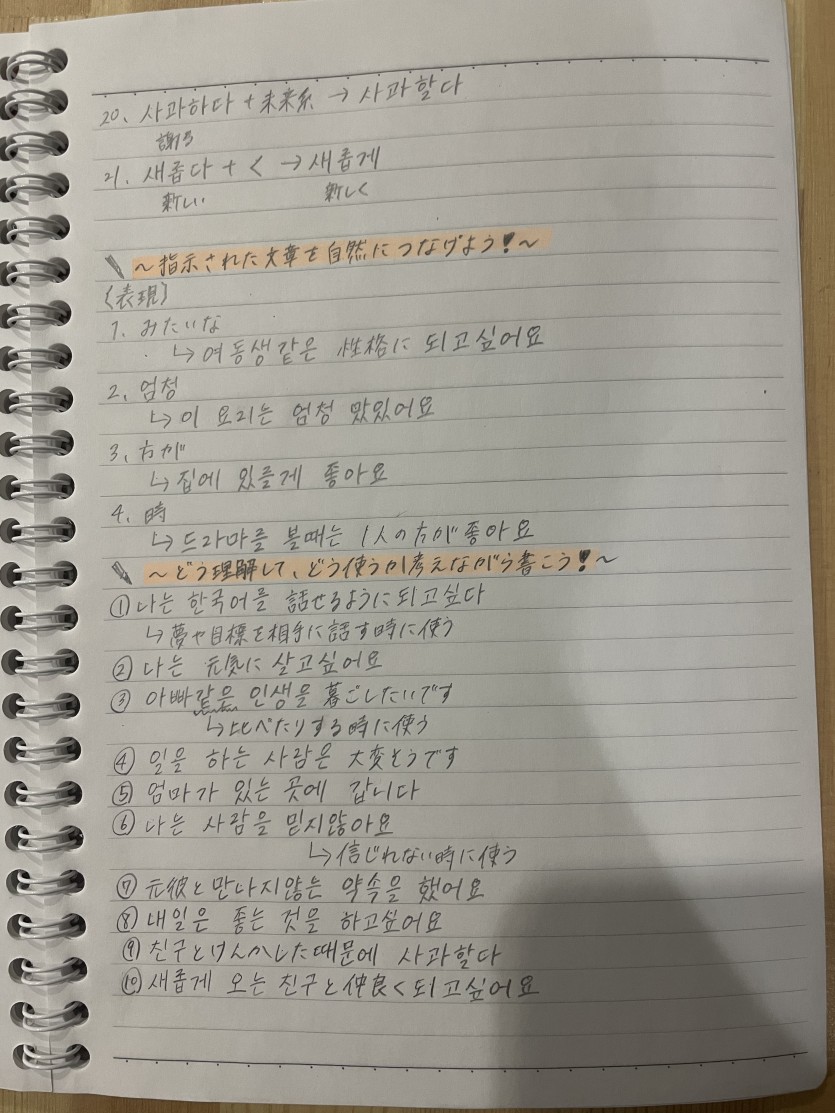 20. 사과하다 + 未来系 → 사과할다
謝る
21. 새롭다 + く → 새롭게
新しい 新しく
〜指示された文章を自然につなげよう!〜
〈表現〉
1. みたいな
↳ 여동생같은 性格に 되고싶어요
2. 엄청
↳ 이 요리는 엄청 맜있어요
3. 方が
↳ 집에 있를게 좋아요
4. 時
↳ 드라마를 볼때는 1人の方が 좋아요
〜どう理解して、どう使うか考えながら書こう!〜
① 나는 한국어를 話せるように되고싶다
↳ 夢や目標を相手に話す時に使う
② 나는 元気に 살고싶어요
③ 아빠같은 인생을 暮ごしたいです
↳ 比べたりする時に使う
④ 일을 하는 사람은 大変そうです
⑤ 엄마가 있는 곳에 갑니다
⑥ 나는 사람을 믿지않아요
↳ 信じれない時に使う
⑦ 元彼と만나지않는 약속을 했어요
⑧ 내일은 좋는 것을 하고싶어요
⑨ 친구とけんかした때문에 사과할다
⑩ 새롭게 오는 친구と仲良く되고싶어요